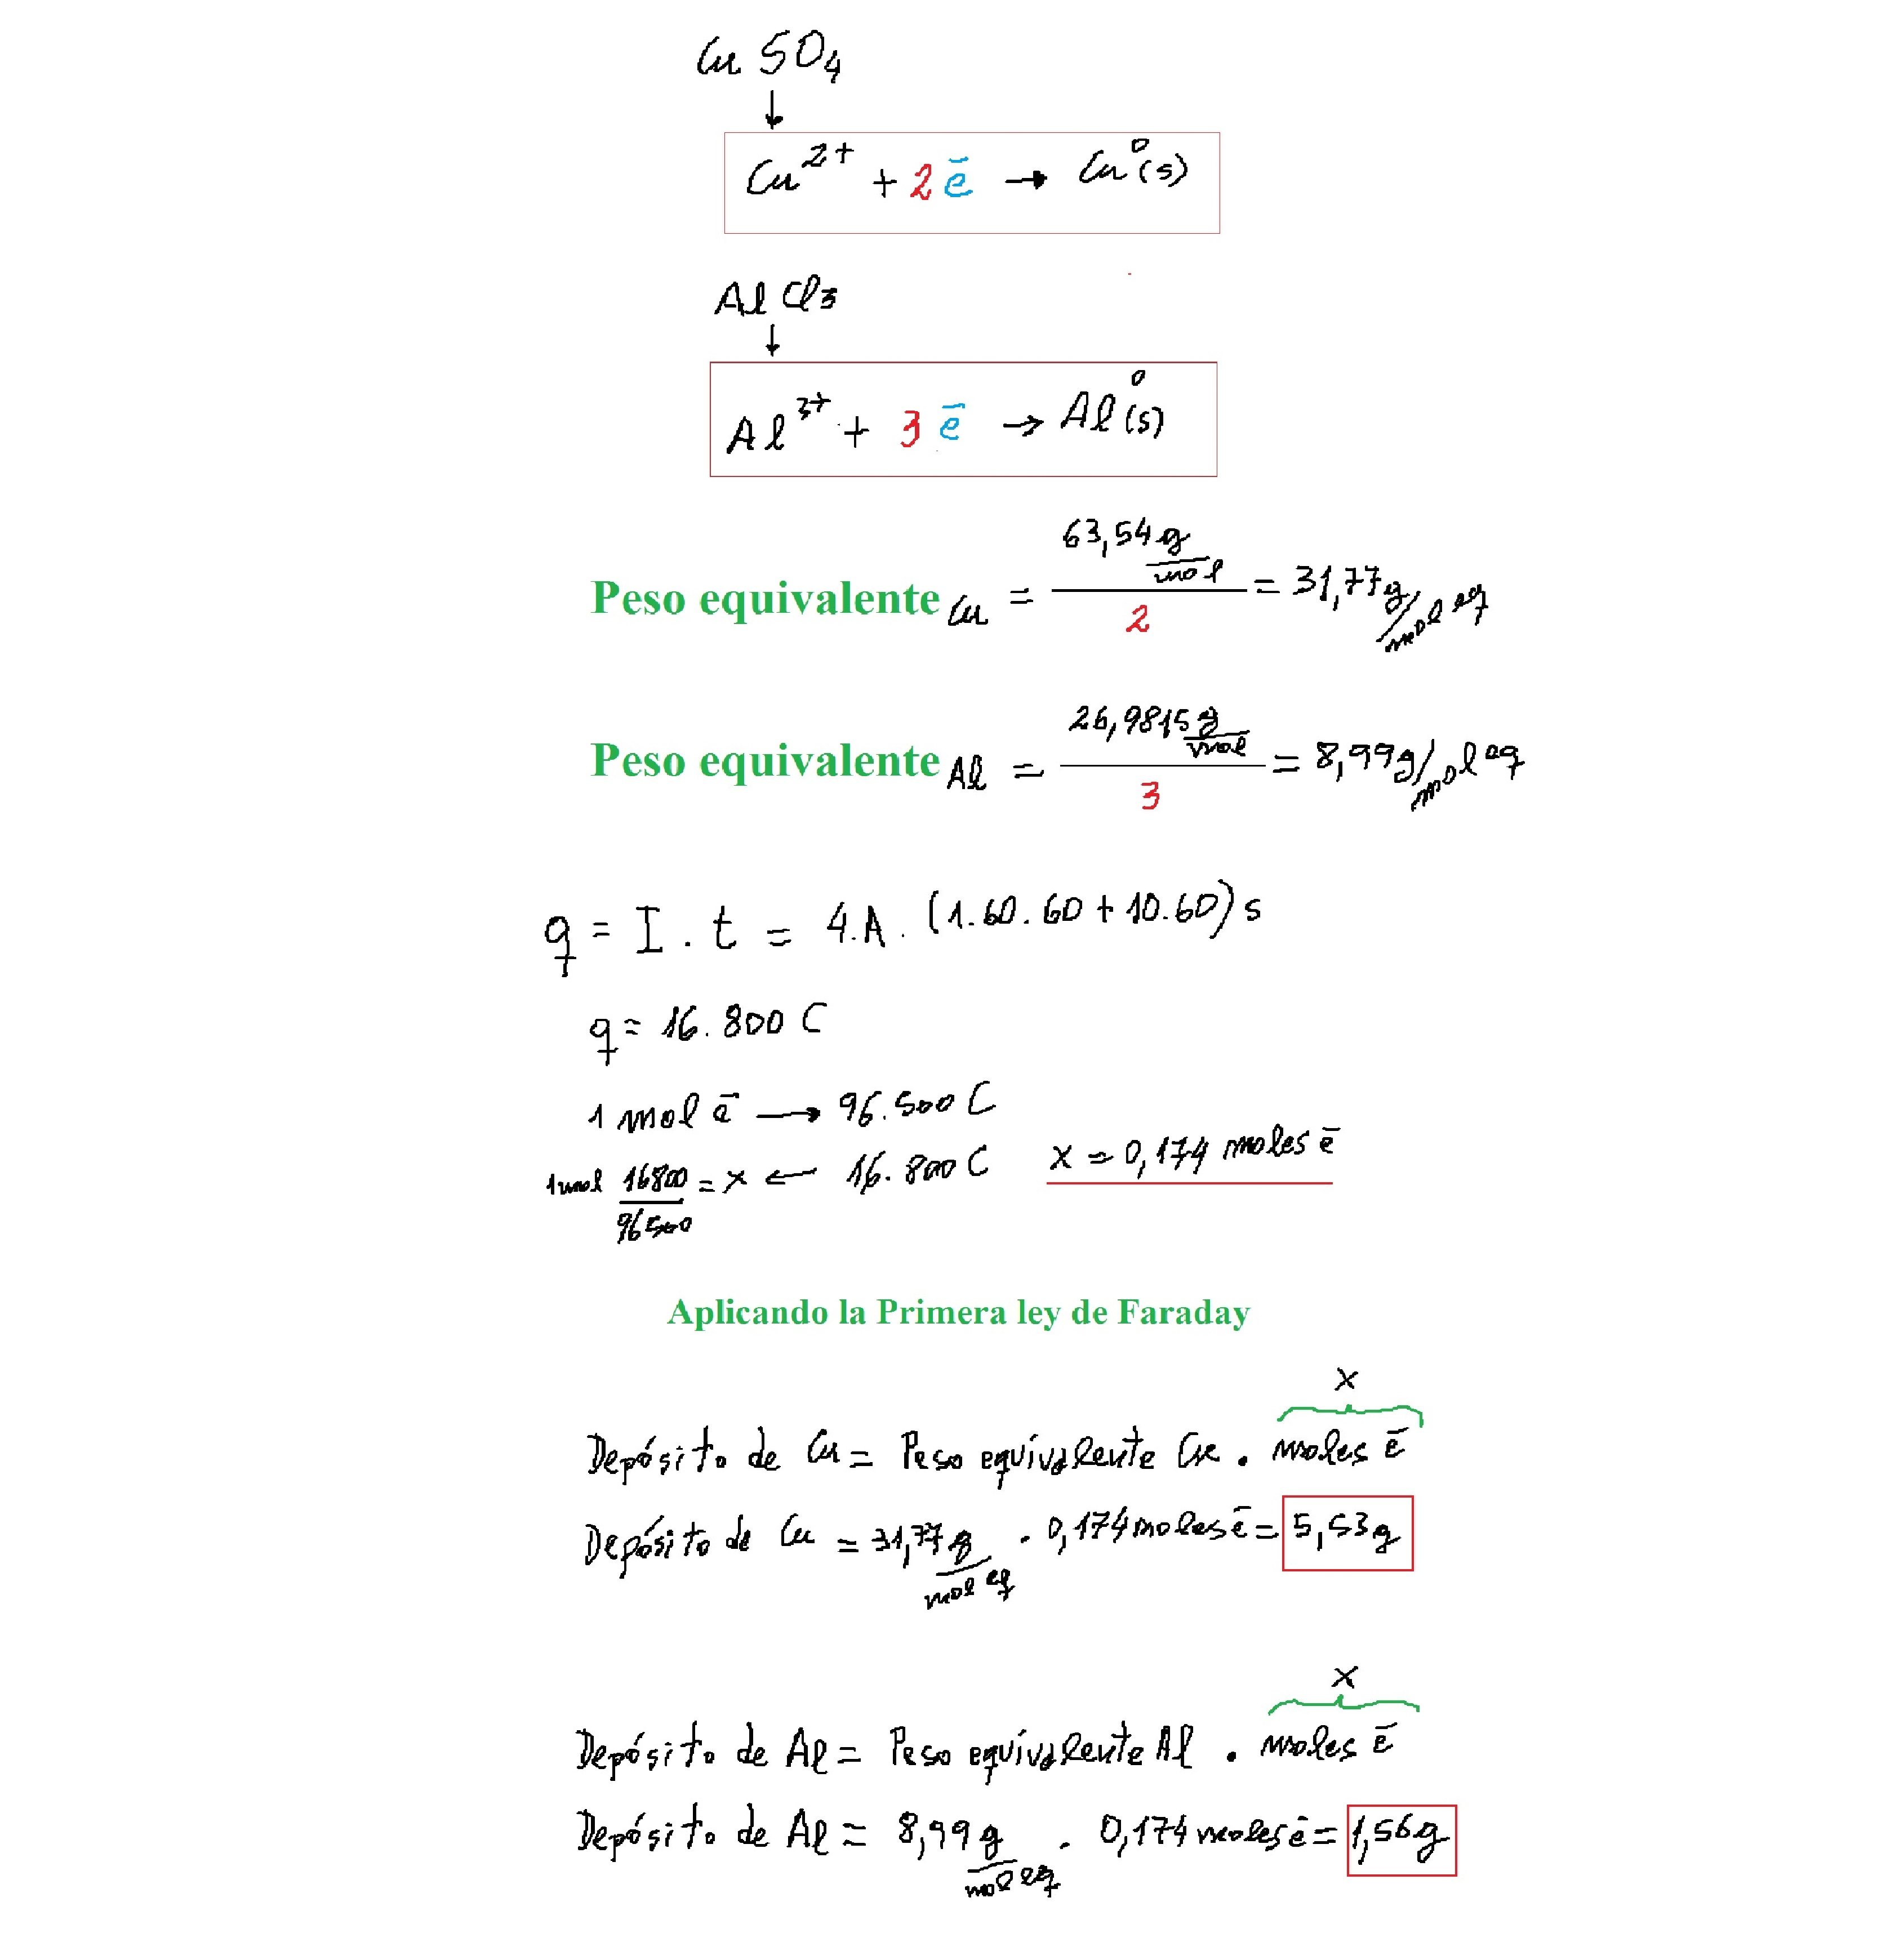 CuSO4
↓
Cu²⁺ + 2ē → Cu⁰(s)
AlCl3
↓
Al³⁺ + 3ē → Al⁰(s)
Peso equivalente Cu = 63,54 g/mol / 2 = 31,77 g/mol eq
Peso equivalente Al = 26,9815 g/mol / 3 = 8,99 g/mol eq
q = I . t = 4.A . (1.60.60 + 10.60) s
q = 16.800 C
1 mol ē → 96.500 C
1 mol 16800/96500 = x ← 16.800 C x = 0,174 moles ē
Aplicando la Primera ley de Faraday
x
Depósito de Cu = Peso equivalente Cu . moles ē
Depósito de Cu = 31,77 g/mol eq . 0,174 moles ē = 5,53 g
x
Depósito de Al = Peso equivalente Al . moles ē
Depósito de Al = 8,99 g/mol eq . 0,174 moles ē = 1,56 g